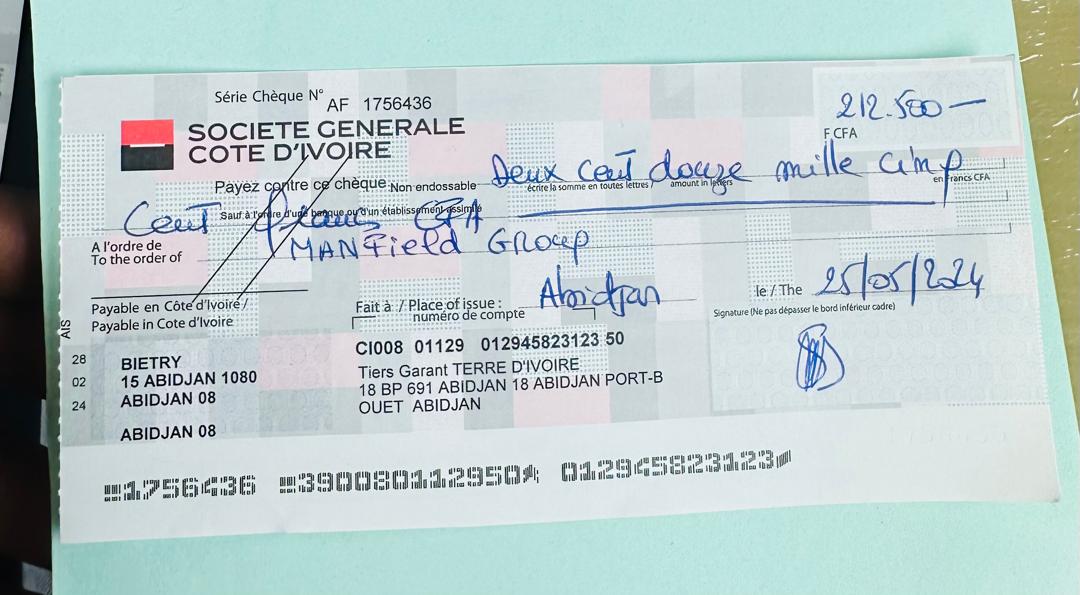 Série Chèque N° AF 1756436
212.500 —
F CFA
SOCIETE GENERALE
COTE D'IVOIRE
Payez contre ce chèque Non endossable Deux cent douze mille cinq
écrire la somme en toutes lettres / amount in letters
en Francs CFA
Sauf à l'ordre d'une banque ou d'un établissement assimilé
Cent francs CFA
A l'ordre de
To the order of
MANField GRoup
Payable en Côte d'Ivoire /
Payable in Cote d'Ivoire
Fait à / Place of issue : Abidjan
le / The 25/05/2024
numéro de compte
Signature (Ne pas dépasser le bord inférieur cadre)
AIS
28
02
24
BIETRY
15 ABIDJAN 1080
ABIDJAN 08
ABIDJAN 08
CI008 01129 012945823123 50
Tiers Garant TERRE D'IVOIRE
18 BP 691 ABIDJAN 18 ABIDJAN PORT-B
OUET ABIDJAN
1756436 390080112950 012945823123